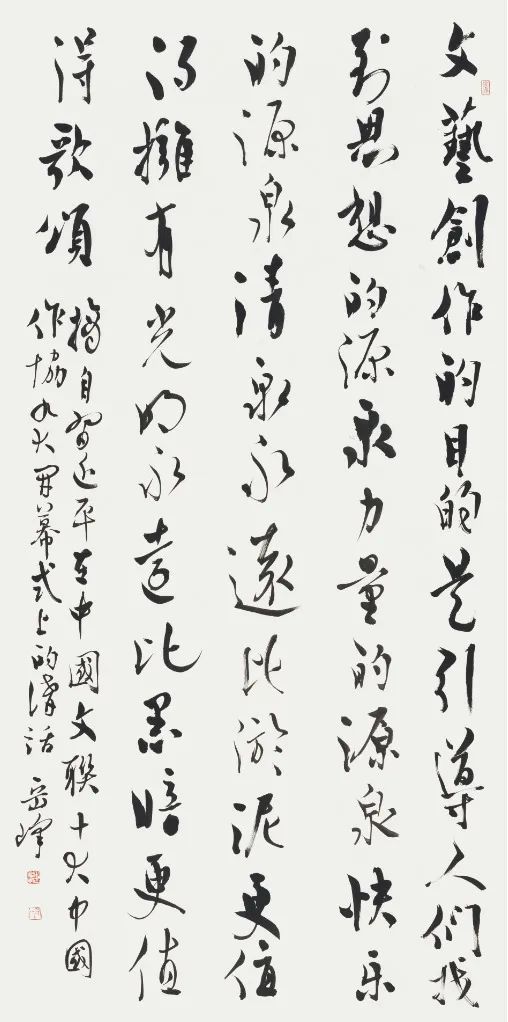 文藝創作的目的是引導人們找
到思想的源泉力量的源泉快乐
的源泉清泉永遠比淤泥更值
得擁有光明永遠比黑暗更值
得歌頌
摘自習近平在中國文聯十大中國
作協九大開幕式上的講話 岳峰